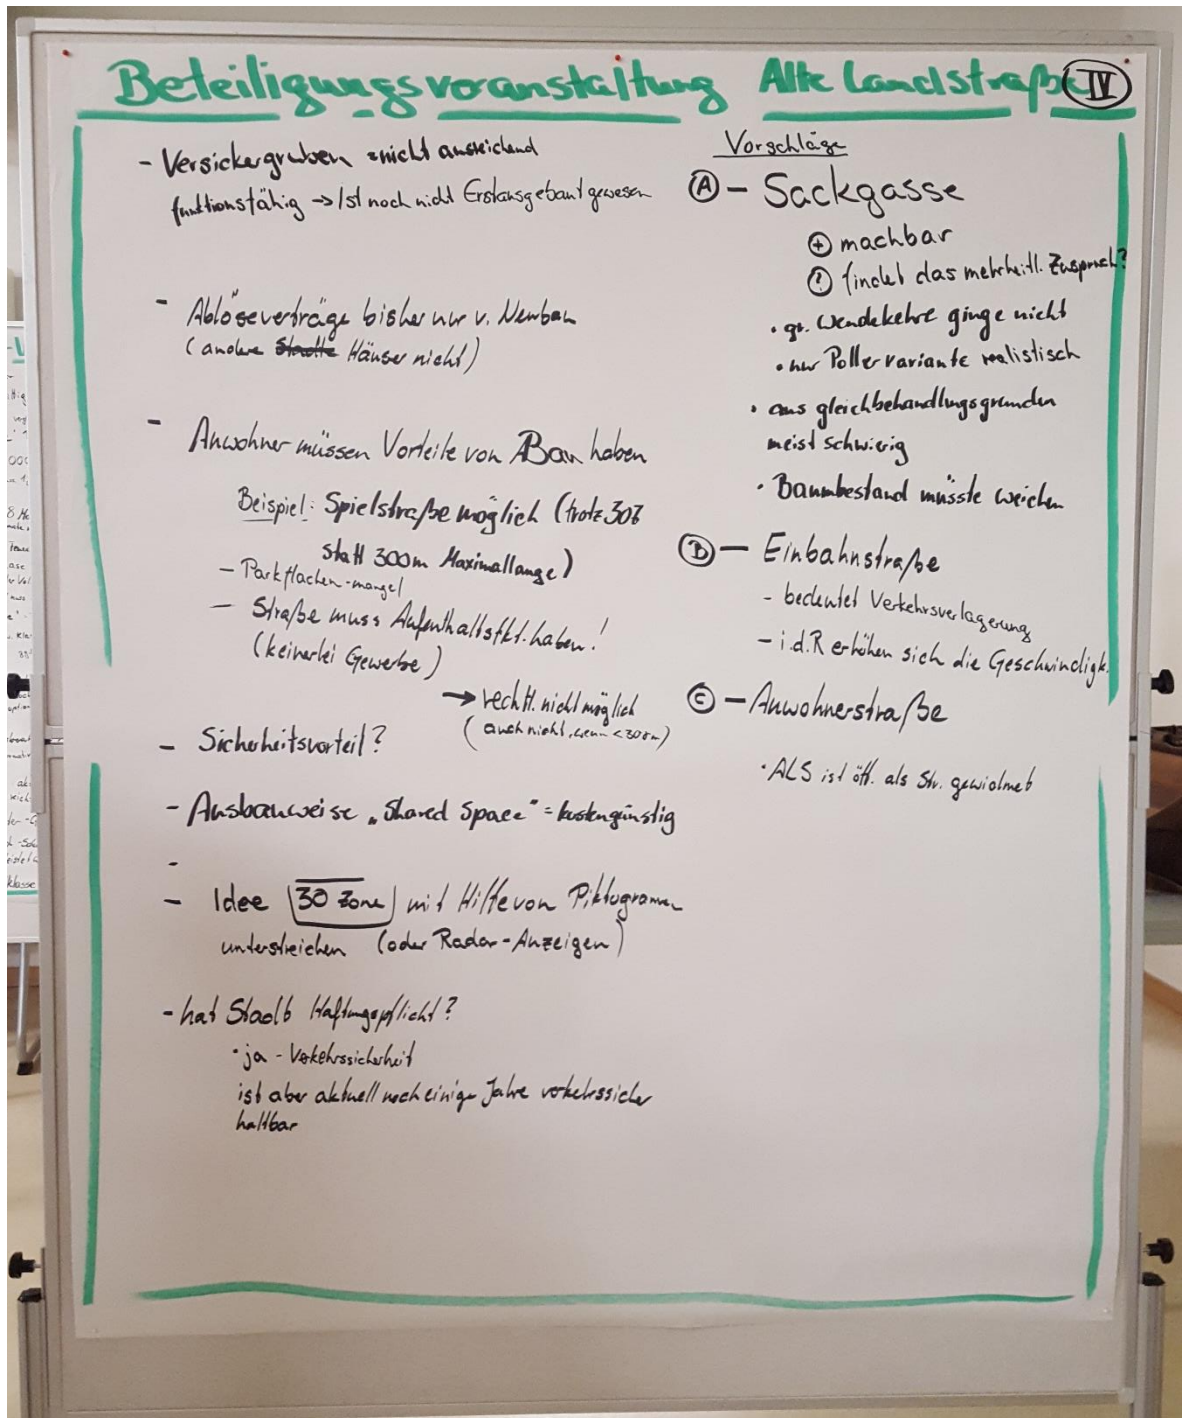 Beteiligungsveranstaltung Alte Landstraße IV
- Versickergruben = nicht ausreichend
funktionsfähig → Ist noch nicht Erstausgebaut gewesen
- Ablöseverträge bisher nur v. Neubau
(andere Städte Häuser nicht)
- Anwohner müssen Vorteile von ABau haben
Beispiel: Spielstraße möglich (trotz 307
statt 300m Maximallänge)
- Parkflächen-mangel
- Straße muss Aufenthaltsfkt. haben!
(keinerlei Gewerbe)
→ rechtl. nicht möglich
(auch nicht, wenn < 300m)
- Sicherheitsvorteil?
- Ausbauweise „Shared Space" = kostengünstig
-
- Idee 30 Zone mit Hilfe von Piktogramen
unterstreichen (oder Radar-Anzeigen)
- hat Stadt Haftungspflicht?
· ja - Verkehrssicherheit
ist aber aktuell noch einige Jahre verkehrssicher
haltbar
Vorschläge
A - Sackgasse
+ machbar
? findet das mehrheitl. Zuspruch?
· gr. Wendekehre ginge nicht
· nur Pollervariante realistisch
· aus gleichbehandlungsgründen
meist schwierig
· Baumbestand müsste weichen
B - Einbahnstraße
- bedeutet Verkehrsverlagerung
- i.d.R erhöhen sich die Geschwindigk.
C - Anwohnerstraße
· ALS ist öff. als Str. gewidmet